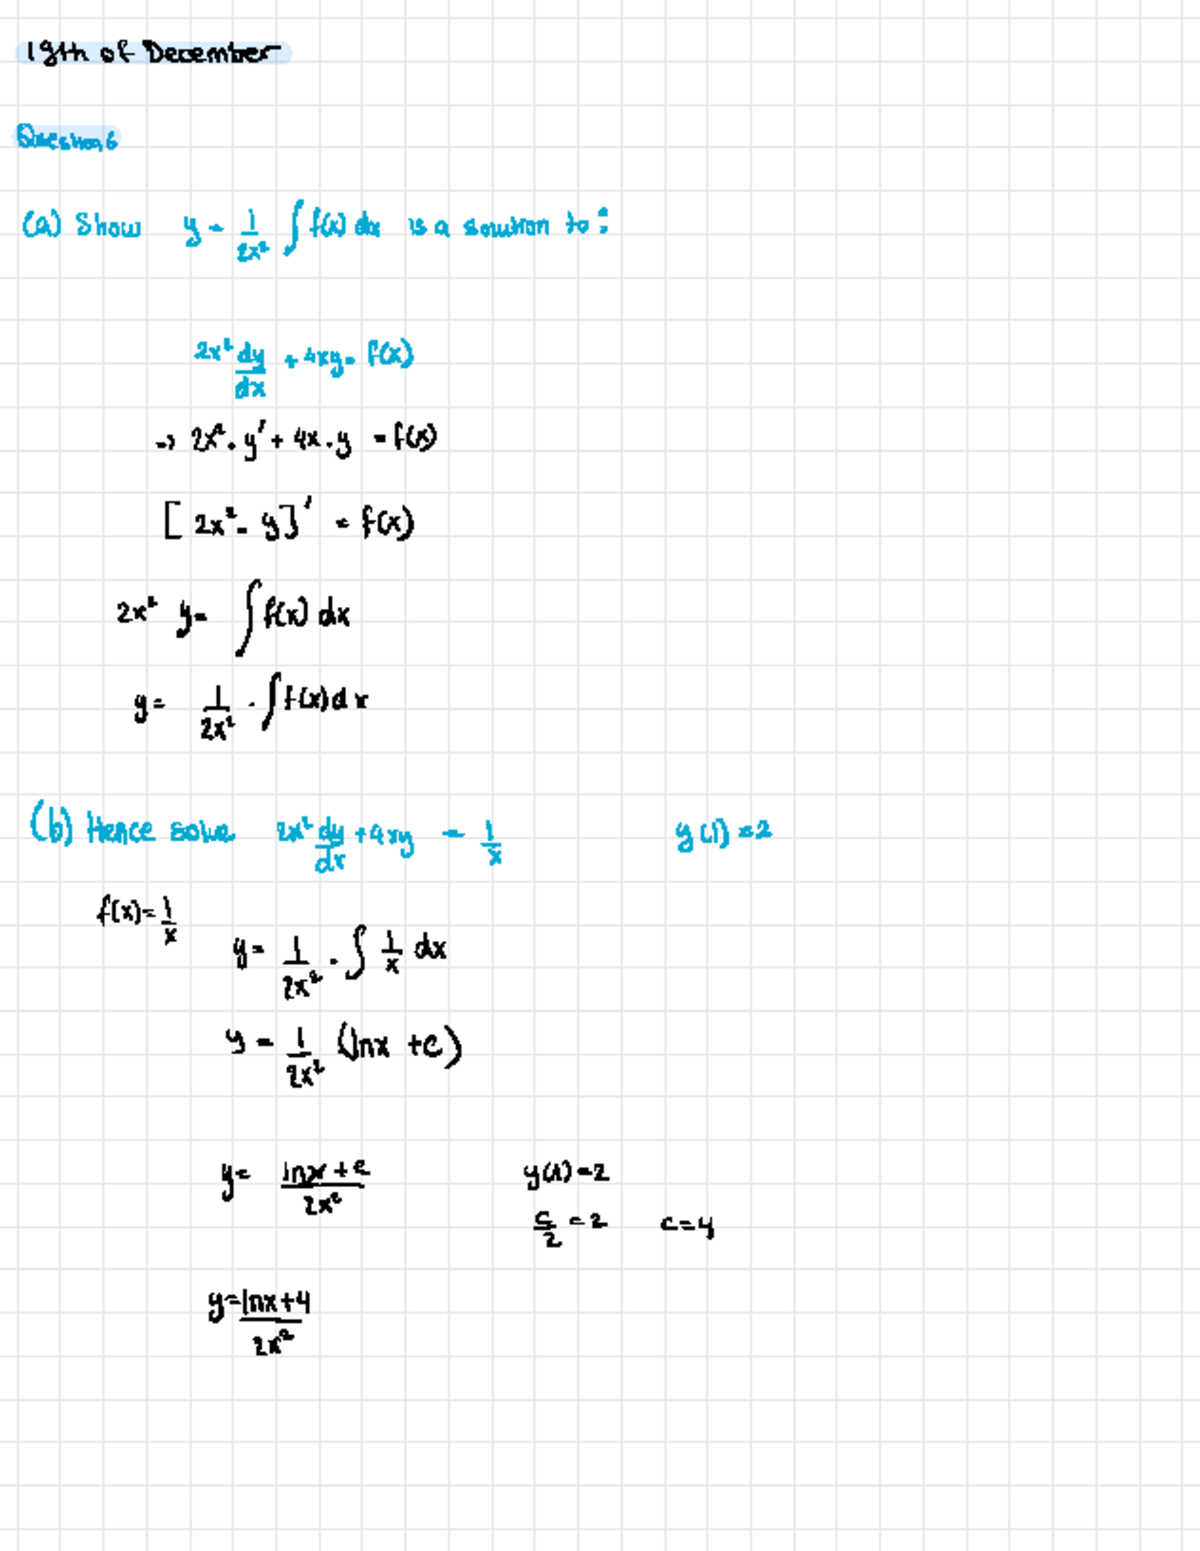 19th of December
Question 6
(a) Show y = 1/2x² ∫ f(x) dx is a solution to:
2x² dy/dx + 4xy = f(x)
→ 2x² · y' + 4x · y = f(x)
[2x² · y]' = f(x)
2x² y = ∫ f(x) dx
y = 1/2x² · ∫ f(x) dx
(b) Hence solve 2x² dy/dx + 4xy = 1/x y(1) = 2
f(x) = 1/x
y = 1/2x² · ∫ 1/x dx
y = 1/2x² (lnx + c)
y = lnx + c/2x² y(1) = 2
c/2 = 2 c = 4
y = lnx + 4/2x²